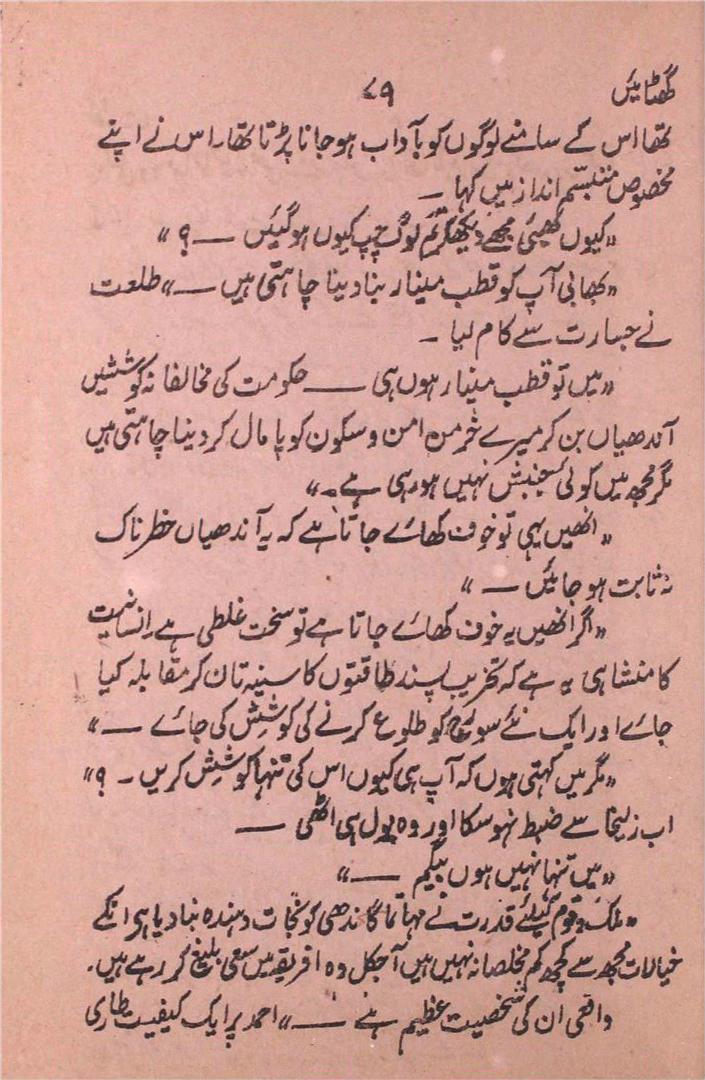 گھٹائیں ۷۹
تھا اس کے سامنے لوگوں کو بآداب ہو جانا پڑتا تھا۔ اس نے اپنے
مخصوص متبسّم انداز میں کہا ــ
"کیوں بھئی مجھے دیکھکر تم لوگ چپ کیوں ہو گئیں ــ ؟"
"بھابی آپ کو قطب مینار بنا دینا چاہتی ہیں ــ" طلعت
نے جسارت سے کام لیا ــ
"میں تو قطب مینار ہوں ہی ــ حکومت کی مخالفانہ کوششیں
آندھیاں بن کر میرے خرمنِ امن و سکون کو پامال کر دینا چاہتی ہیں
مگر مجھ میں کوئی جنبش نہیں ہو رہی ہے۔"
"انھیں یہی تو خوف کھائے جاتا ہے کہ یہ آندھیاں خطرناک
نہ ثابت ہو جائیں ــ"
"اگر انھیں یہ خوف کھائے جاتا ہے تو سخت غلطی ہے انسانیت
کا منشا ہی یہ ہے کہ تخریب پسند طاقتوں کا سینہ تان کر مقابلہ کیا
جائے اور ایک نئے سورج کو طلوع کرنے کی کوشش کی جائے ــ"
"مگر میں کہتی ہوں کہ آپ ہی کیوں اس کی تنہا کوشش کریں ۔ ؟"
اب زلیخا سے ضبط نہو سکا اور وہ بول ہی اٹھی ــ
"میں تنہا نہیں ہوں بیگم ــ"
"ملک و قوم کیلئے قدرت نے مہاتما گاندھی کو نجات دہندہ بنا دیا ہے انکے
خیالات مجھ سے کچھ کم مخلصانہ نہیں ہیں آجکل وہ افریقہ میں سعی بلیغ کر رہے ہیں.
واقعی ان کی شخصیت عظیم ہے ــ" احمد پر ایک کیفیت طاری